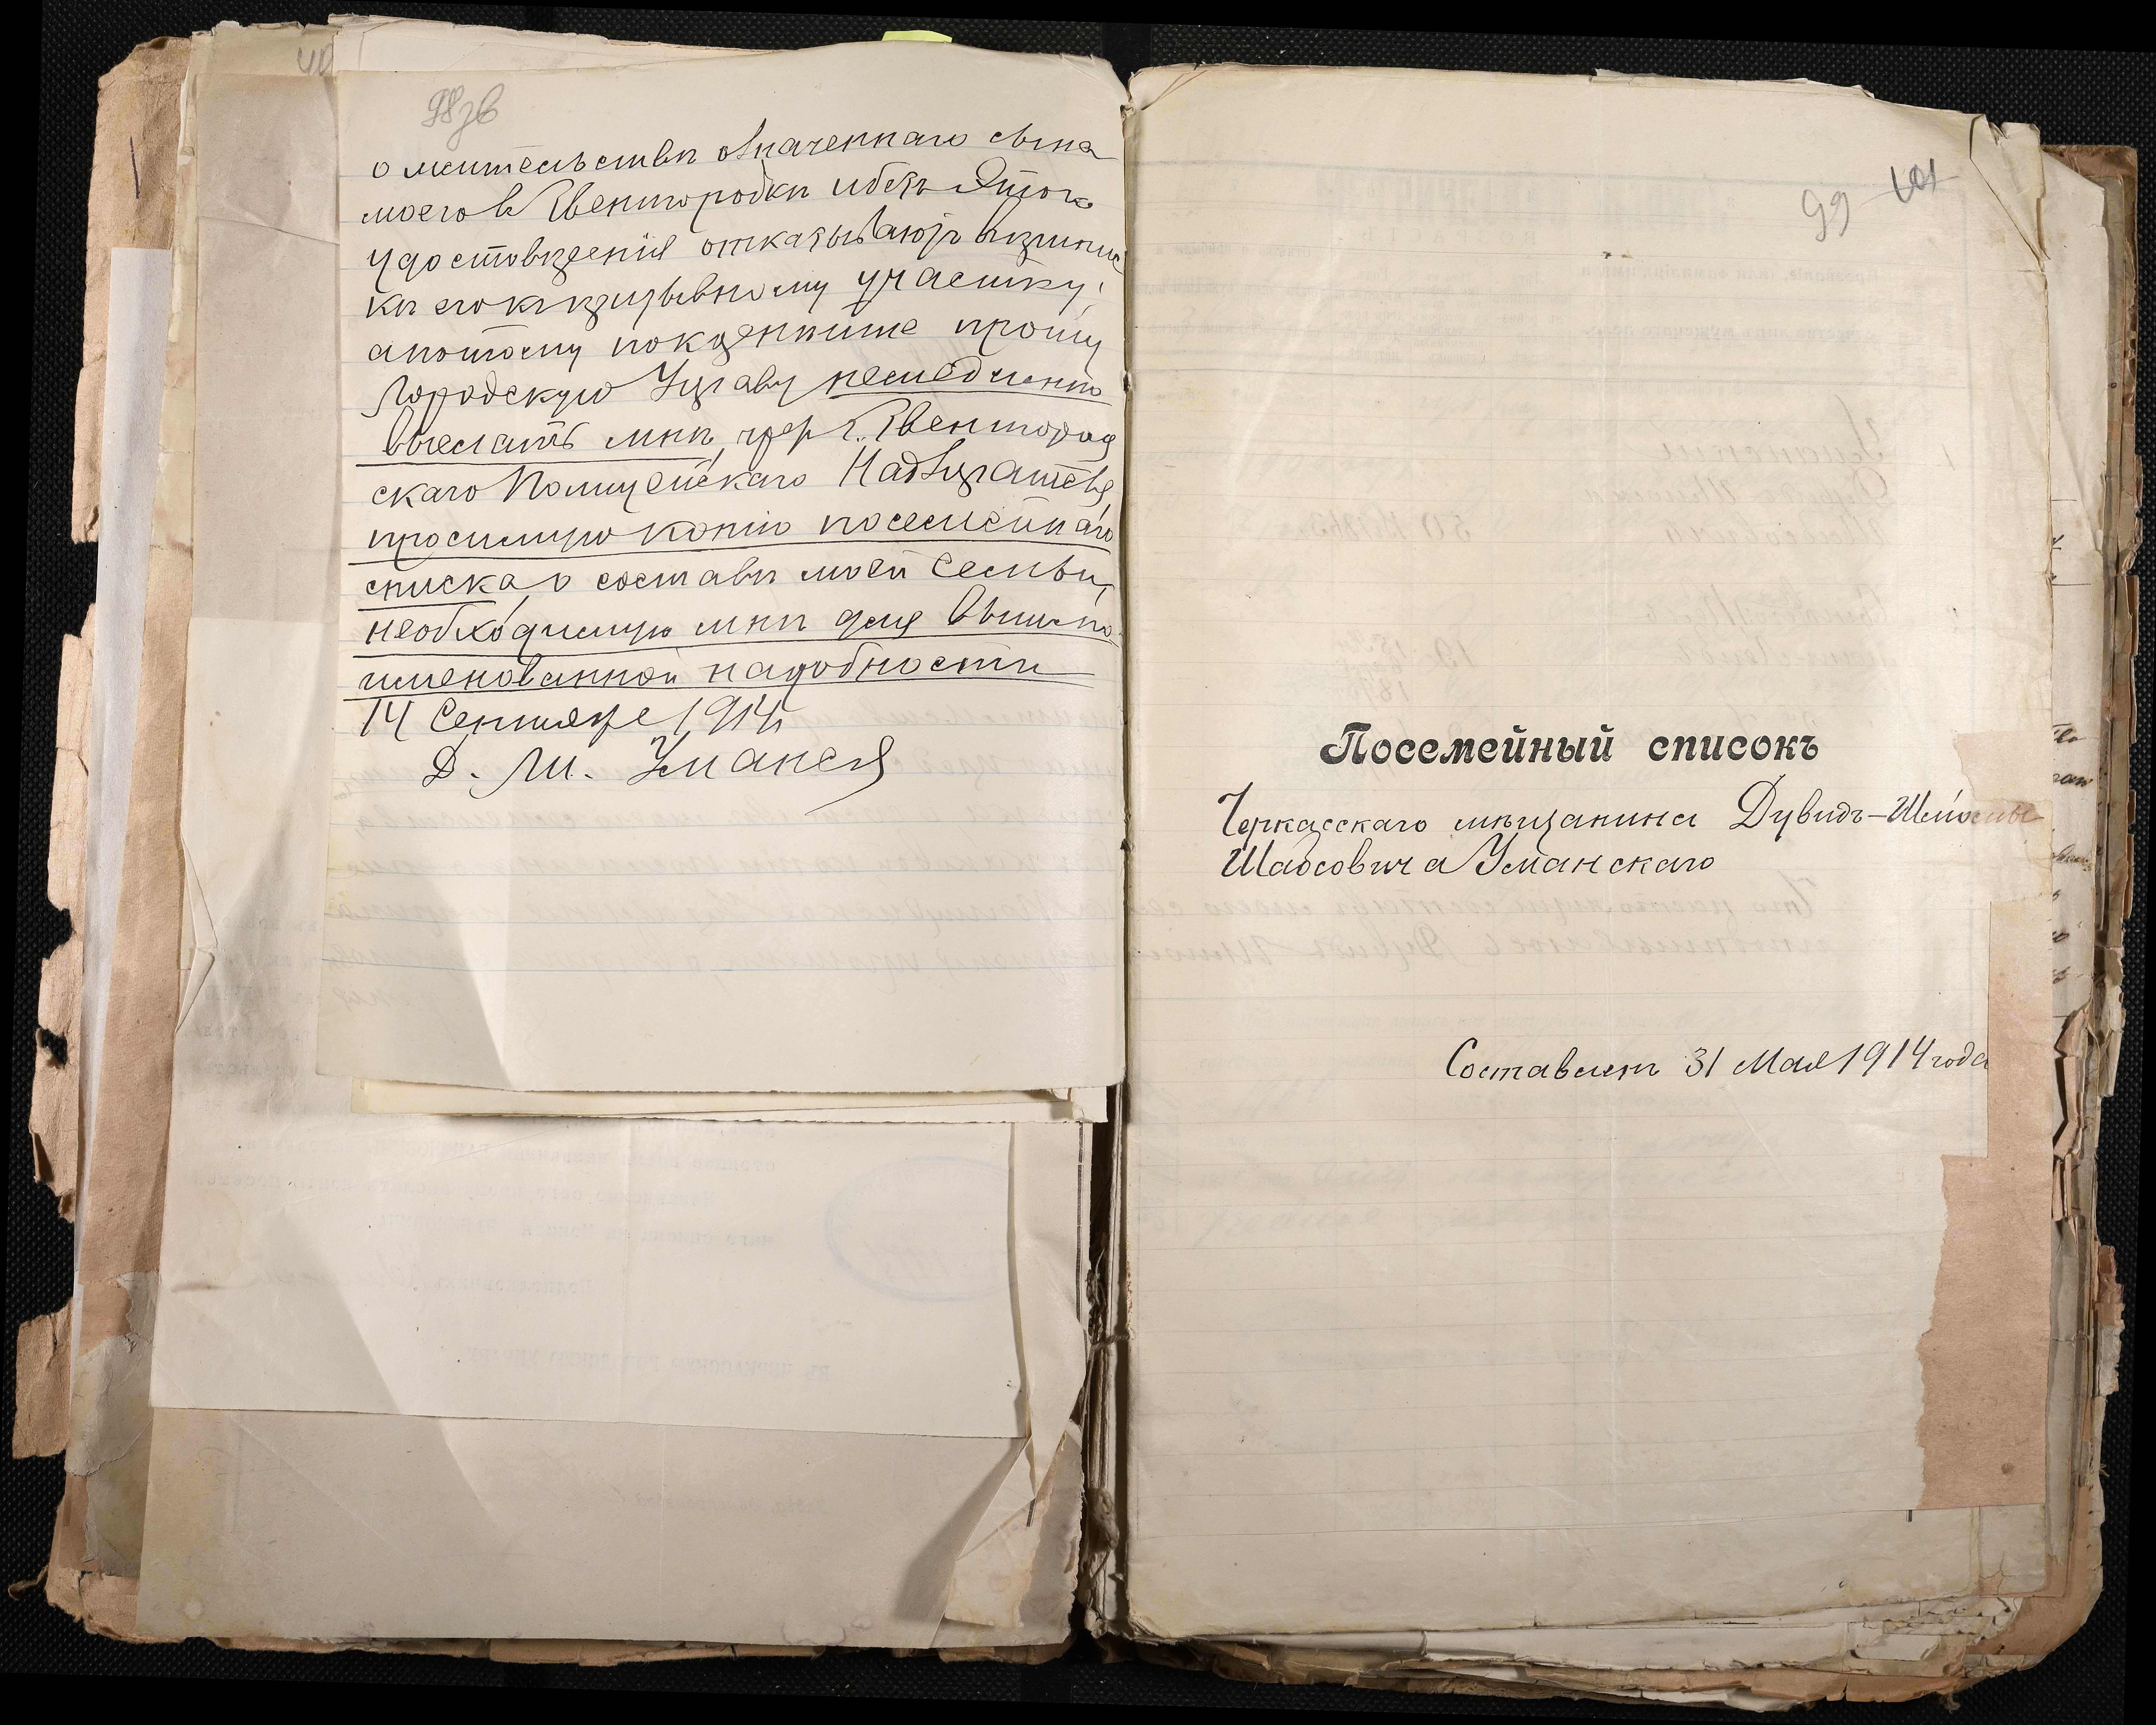 98зв
о жительствѣ означеннаго сына
моего в Звенигородкѣ ибезъ Этого
удостовѣренія отказываютъ въприпис
кѣ его кпризывному участку;
апотому покорнѣйше прошу
Городскую Управу немедленно
выслать мнѣ, чрез Г. Звенигород
скаго Полицейскаго Надзирателя,
просимую копію посемейнаго
списка, о составѣ моей Семьи,
необходимую мнѣ для вышепо
именованной надобности
14 Сентября 1914г
Д. Ш. Уманскій
99 101
Посемейный списокъ
Черкасскаго мѣщанина Дувидъ-Шлиомы
Шаосовича Уманскаго
Составленъ 31 Мая 1914 года